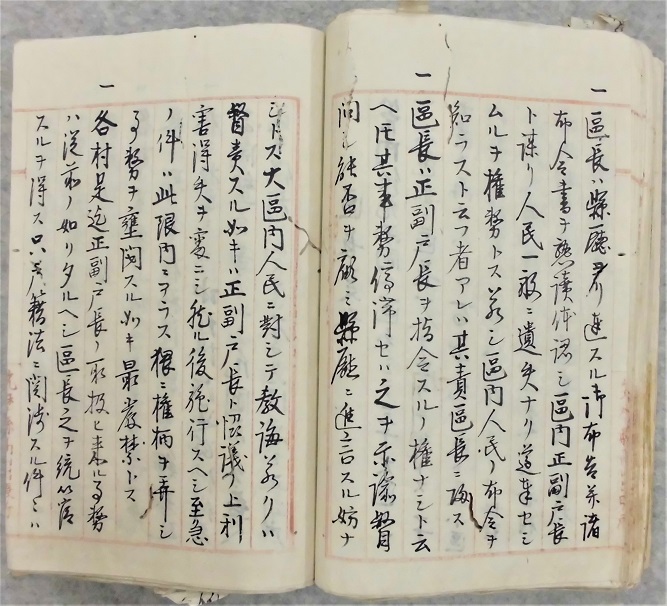 一 區長ハ縣廳ヨリ達スル御布告并諸
布令書ヲ熟讀体認シ區内正副戸長
ト謀リ人民一般ニ遺失ナク遵奉セシ
ムルヲ權務トス若シ區内人民ノ布令ヲ
知ラスト云フ者アレハ其責區長ニ歸ス
一 區長ハ正副戸長ヲ指令スルノ權ナシト云
ヘ圧其事務停滞セハ之ヲ示諭督
問シ能否ヲ顧ミ縣廳ニ進言スル妨ナ
シトス大區内人民ニ對シテ教誨若クハ
督責スル如キハ正副戸長ト恊議ノ上利
害得失ヲ審ニシ然ル後施行スヘシ至急
ノ件ハ此限内ニアラス猥ニ權柄ヲ弄シ
事務ヲ壅閼スル如キ最嚴禁トス
一 各村是迄正副戸長ノ取扱ヒ來ル事務
ハ從前ノ如クタルヘシ區長之ヲ統
スルヲ得ス只戸籍法ニ関渉スル件々ハ